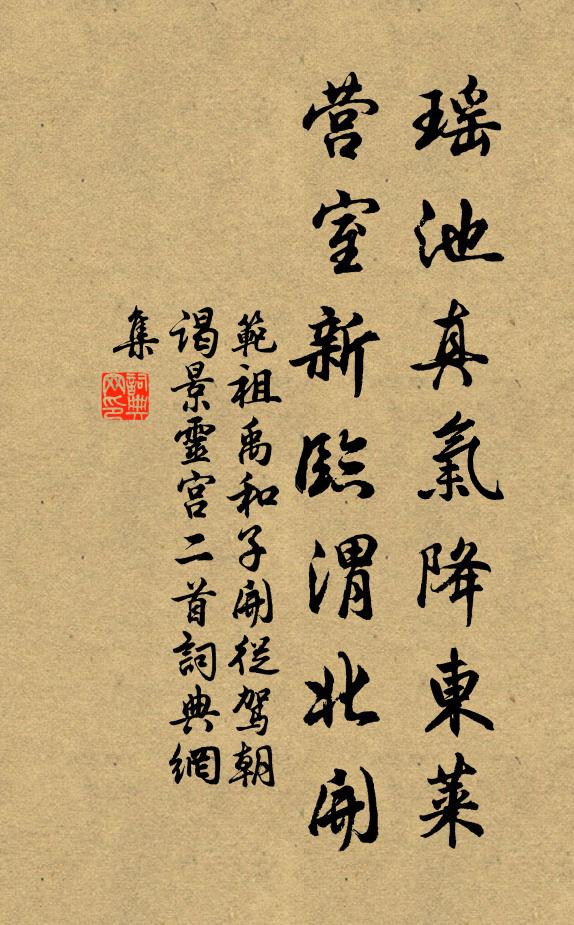 瑶池真氣降東萊
营室新臨渭北開
範祖禹和子開從駕朝
謁景靈宮二首詞典網
集
詞典網印